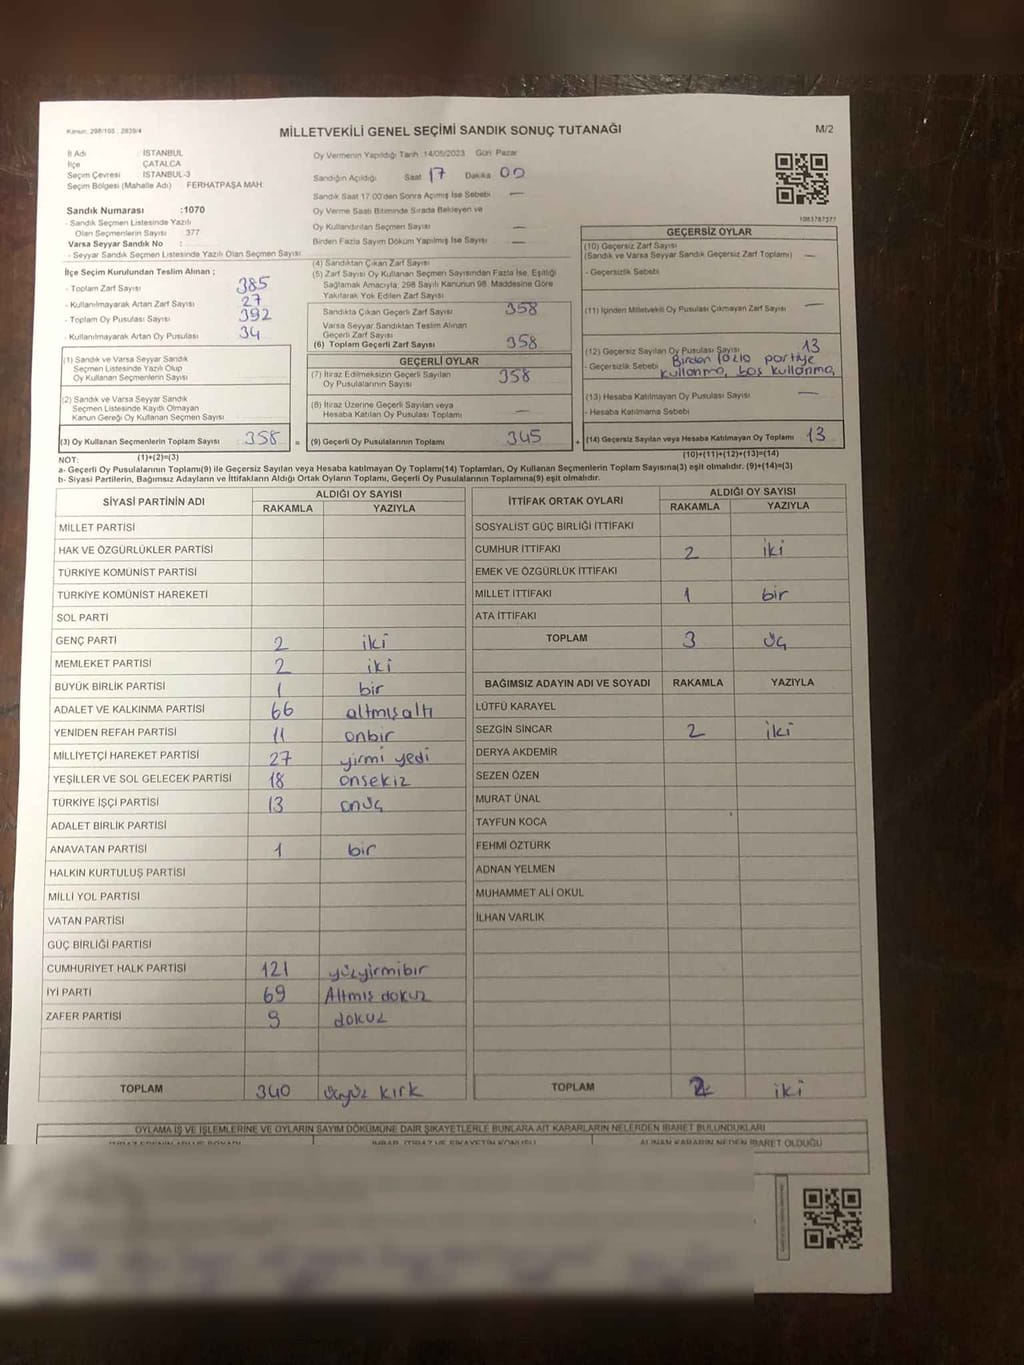 Kanun: 298/105 , 2839/4
MİLLETVEKİLİ GENEL SEÇİMİ SANDIK SONUÇ TUTANAĞI
M/2
İl Adı : İSTANBUL
İlçe : ÇATALCA
Seçim Çevresi : İSTANBUL-3
Seçim Bölgesi (Mahalle Adı) : FERHATPAŞA MAH.
Oy Vermenin Yapıldığı Tarih :14/05/2023 Gün: Pazar
Sandığın Açıldığı Saat 17 Dakika 00
Sandık Saat 17:00'den Sonra Açılmış İse Sebebi —
Oy Verme Saati Bitiminde Sırada Bekleyen ve
Oy Kullandırılan Seçmen Sayısı —
Birden Fazla Sayım Döküm Yapılmış İse Sayısı —
Sandık Numarası :1070
- Sandık Seçmen Listesinde Yazılı
Olan Seçmenlerin Sayısı : 377
Varsa Seyyar Sandık No :
- Seyyar Sandık Seçmen Listesinde Yazılı Olan Seçmen Sayısı:
1083787377
İlçe Seçim Kurulundan Teslim Alınan ;
- Toplam Zarf Sayısı : 385
- Kullanılmayarak Artan Zarf Sayısı : 27
- Toplam Oy Pusulası Sayısı : 392
- Kullanılmayarak Artan Oy Pusulası : 34
(1) Sandık ve Varsa Seyyar Sandık
Seçmen Listesinde Yazılı Olup
Oy Kullanan Seçmenlerin Sayısı
(2) Sandık ve Varsa Seyyar Sandık
Seçmen Listesinde Kayıtlı Olmayan
Kanun Gereği Oy Kullanan Seçmen Sayısı
(3) Oy Kullanan Seçmenlerin Toplam Sayısı 358
(4) Sandıktan Çıkan Zarf Sayısı
(5) Zarf Sayısı Oy Kullanan Seçmen Sayısından Fazla İse, Eşitliği
Sağlamak Amacıyla, 298 Sayılı Kanunun 98. Maddesine Göre
Yakılarak Yok Edilen Zarf Sayısı
Sandıkta Çıkan Geçerli Zarf Sayısı 358
Varsa Seyyar Sandıktan Teslim Alınan
Geçerli Zarf Sayısı
(6) Toplam Geçerli Zarf Sayısı 358
GEÇERLİ OYLAR
(7) İtiraz Edilmeksizin Geçerli Sayılan
Oy Pusulalarının Sayısı 358
(8) İtiraz Üzerine Geçerli Sayılan veya
Hesaba Katılan Oy Pusulası Toplamı —
= (9) Geçerli Oy Pusulalarının Toplamı 345
GEÇERSİZ OYLAR
(10) Geçersiz Zarf Sayısı
(Sandık ve Varsa Seyyar Sandık Geçersiz Zarf Toplamı) —
- Geçersizlik Sebebi
(11) İçinden Milletvekili Oy Pusulası Çıkmayan Zarf Sayısı —
(12) Geçersiz Sayılan Oy Pusulası Sayısı 13
- Geçersizlik Sebebi Birden fazla partiye
kullanma, boş kullanma,
(13) Hesaba Katılmayan Oy Pusulası Sayısı —
- Hesaba Katılmama Sebebi
+ (14) Geçersiz Sayılan veya Hesaba Katılmayan Oy Toplamı 13
NOT: (1)+(2)=(3)
(10)+(11)+(12)+(13)=(14)
a- Geçerli Oy Pusulalarının Toplamı(9) ile Geçersiz Sayılan veya Hesaba katılmayan Oy Toplamı(14) Toplamları, Oy Kullanan Seçmenlerin Toplam Sayısına(3) eşit olmalıdır. (9)+(14)=(3)
b- Siyasi Partilerin, Bağımsız Adayların ve İttifakların Aldığı Ortak Oyların Toplamı, Geçerli Oy Pusulalarının Toplamına(9) eşit olmalıdır.
SİYASİ PARTİNİN ADI
ALDIĞI OY SAYISI
RAKAMLA YAZIYLA
MİLLET PARTİSİ
HAK VE ÖZGÜRLÜKLER PARTİSİ
TÜRKİYE KOMÜNİST PARTİSİ
TÜRKİYE KOMÜNİST HAREKETİ
SOL PARTİ
GENÇ PARTİ 2 iki
MEMLEKET PARTİSİ 2 iki
BÜYÜK BİRLİK PARTİSİ 1 bir
ADALET VE KALKINMA PARTİSİ 66 altmışaltı
YENİDEN REFAH PARTİSİ 11 onbir
MİLLİYETÇİ HAREKET PARTİSİ 27 yirmi yedi
YEŞİLLER VE SOL GELECEK PARTİSİ 18 onsekiz
TÜRKİYE İŞÇİ PARTİSİ 13 onüç
ADALET BİRLİK PARTİSİ
ANAVATAN PARTİSİ 1 bir
HALKIN KURTULUŞ PARTİSİ
MİLLİ YOL PARTİSİ
VATAN PARTİSİ
GÜÇ BİRLİĞİ PARTİSİ
CUMHURİYET HALK PARTİSİ 121 yüzyirmibir
İYİ PARTİ 69 Altmış dokuz
ZAFER PARTİSİ 9 dokuz
TOPLAM 340 üçyüz kırk
İTTİFAK ORTAK OYLARI
ALDIĞI OY SAYISI
RAKAMLA YAZIYLA
SOSYALİST GÜÇ BİRLİĞİ İTTİFAKI
CUMHUR İTTİFAKI 2 iki
EMEK VE ÖZGÜRLÜK İTTİFAKI
MİLLET İTTİFAKI 1 bir
ATA İTTİFAKI
TOPLAM 3 üç
BAĞIMSIZ ADAYIN ADI VE SOYADI RAKAMLA YAZIYLA
LÜTFÜ KARAYEL
SEZGİN SİNCAR 2 iki
DERYA AKDEMİR
SEZEN ÖZEN
MURAT ÜNAL
TAYFUN KOCA
FEHMİ ÖZTÜRK
ADNAN YELMEN
MUHAMMET ALİ OKUL
İLHAN VARLIK
TOPLAM 2 iki
OYLAMA İŞ VE İŞLEMLERİNE VE OYLARIN SAYIM DÖKÜMÜNE DAİR ŞİKAYETLERLE BUNLARA AİT KARARLARIN NELERDEN İBARET BULUNDUKLARI
ALINAN KARARIN NEDEN İBARET OLDUĞU